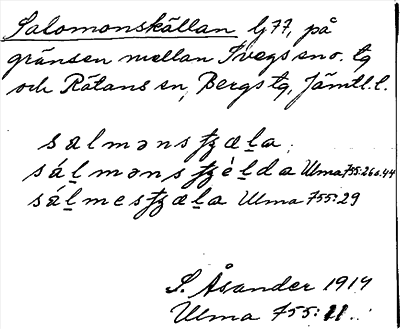 Salomonskällan lj 77, på
gränsen mellan Svegs sn o. tg
och Rätans sn, Bergs tg, Jämtl. l.
salmənsʄæḷa,
sáḷmənsʄèḷda Ulma 755:26 o. 44
sáḷmesʄæḷa Ulma 755:29
S. Åsander 1914
Ulma 755: 11.